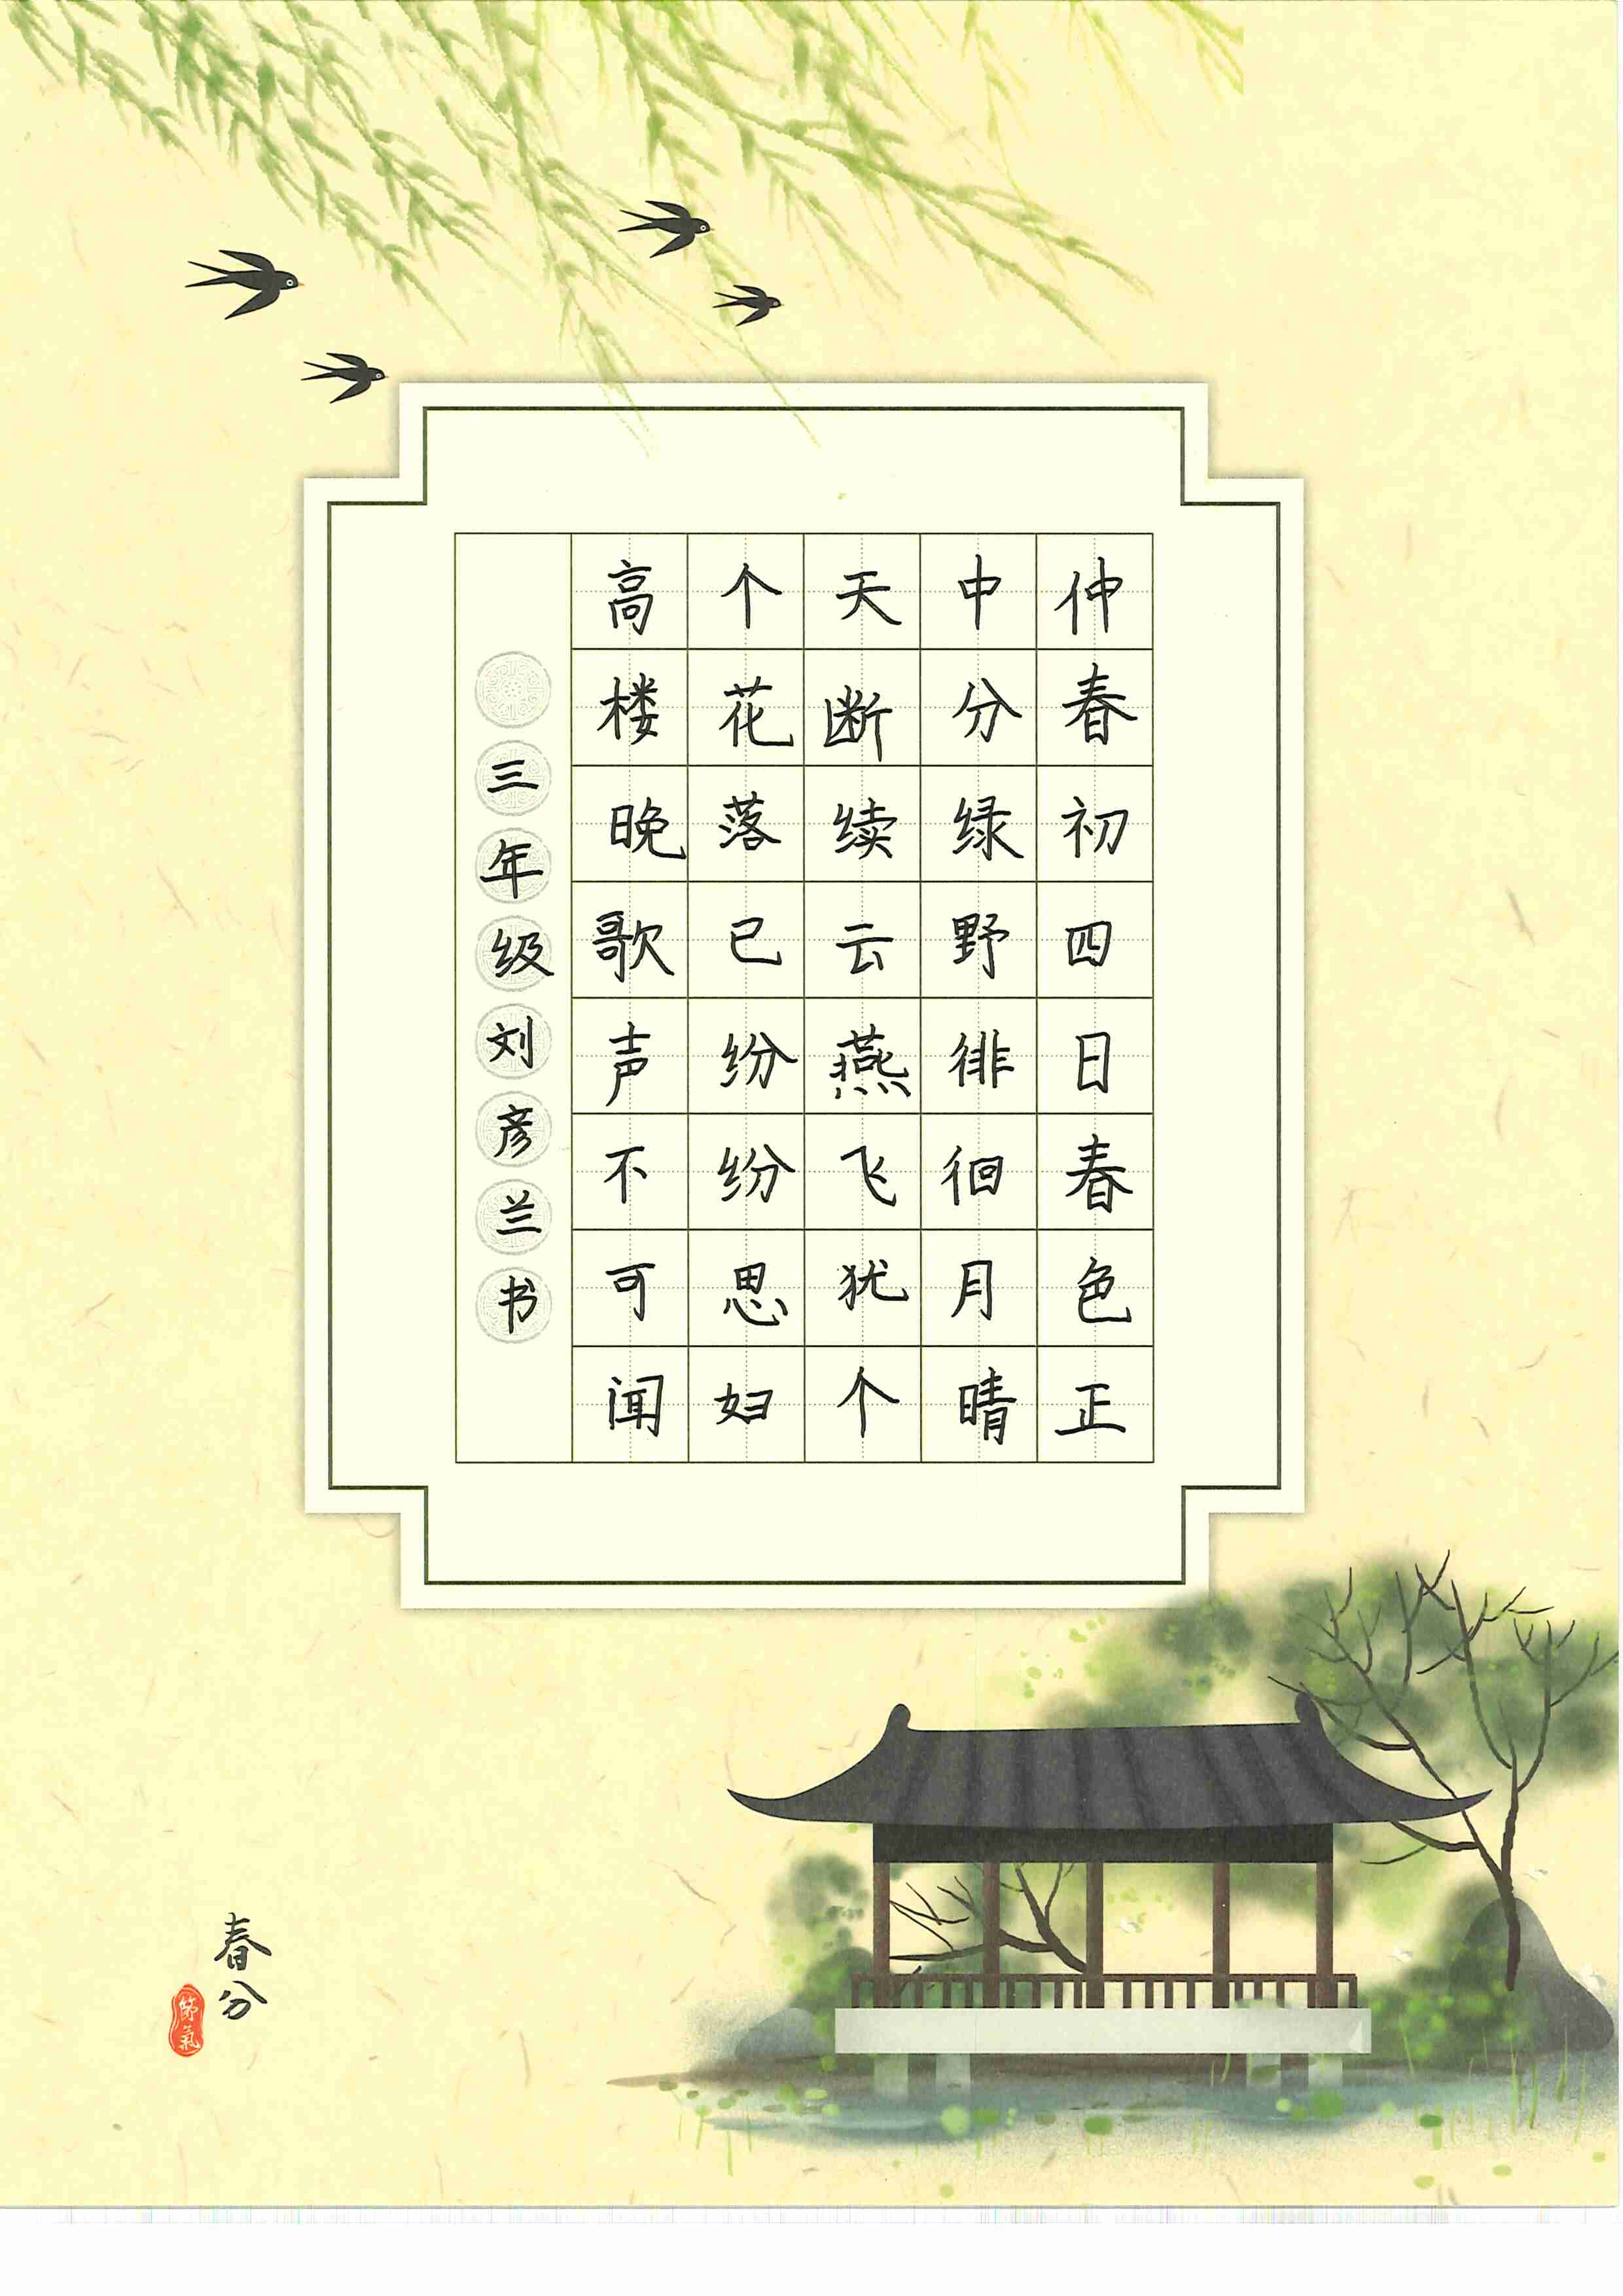 仲春初四日春色正
中分绿野徘徊月晴
天断续云燕飞犹个
个花落已纷纷思妇
高楼晚歌声不可闻
三年级刘彦兰书
春分
節氣